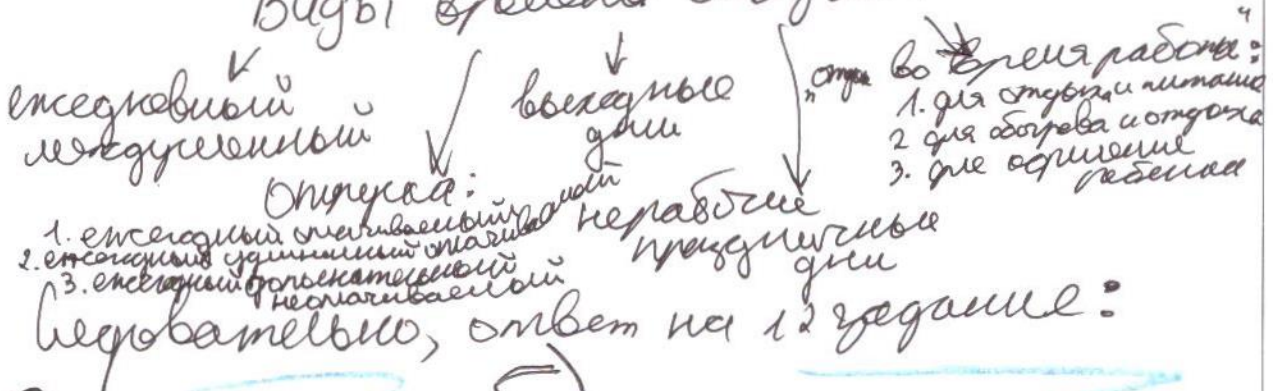 Виды времени
ежедневный
междусменный
выходные
дни
"отдых во время работы":
1. для отдыха и питания
2 для обогрева и отдыха
3. для кормление
ребенка
Отпуска:
1. ежегодный оплачиваемый
2. ежегодный удлиненный оплачиваемый
3. ежегодный дополнительный
неоплачиваемый
нерабочие
праздничные
дни
Следовательно, ответ на 12 задание: